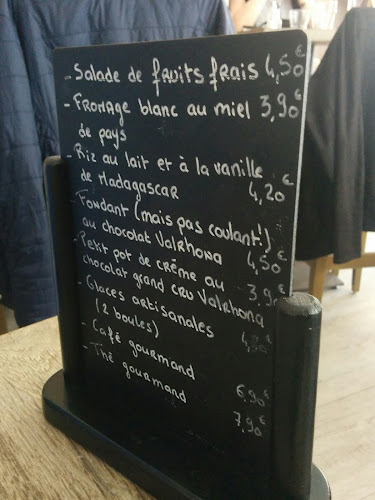 - Salade de fruits frais 4,50€
- Fromage blanc au miel 3,90€
de pays
- Riz au lait et à la vanille
de Madagascar 4,20€
- Fondant (mais pas coulant!)
au chocolat Valrhona 4,50€
- Petit pot de crème au
chocolat grand cru Valrhona 3,9
- Glaces artisanales
(2 boules)
- Café gourmand 6,90€
- Thé gourmand 7,90€